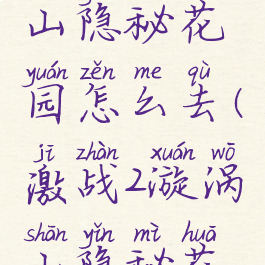 山隐秘花
yuán zěn me qù
园怎么去(
jī zhàn xuán wō
激战2漩涡
shān yǐn mì huā
山隐秘花